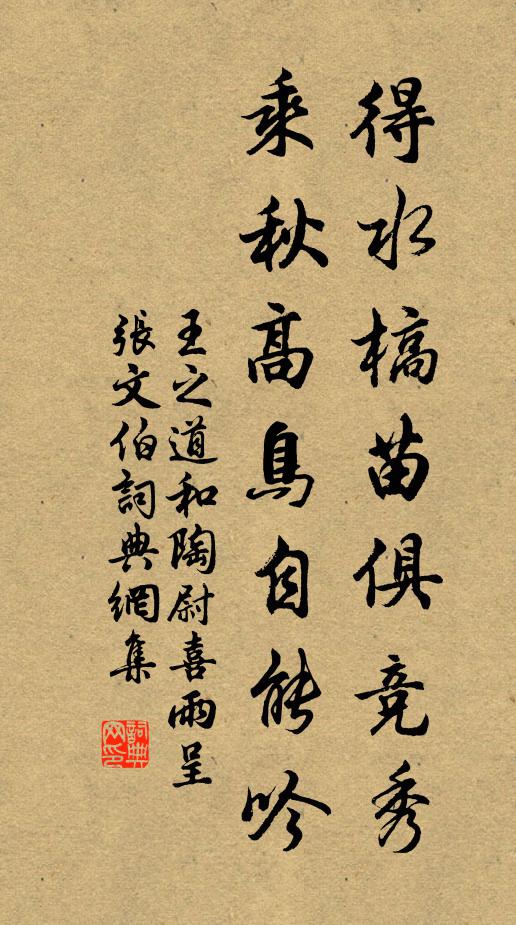 得水槁苗俱竞秀
乘秋高鳥自能吟
王之道和陶尉喜雨呈
張文伯詞典網集
詞典网印